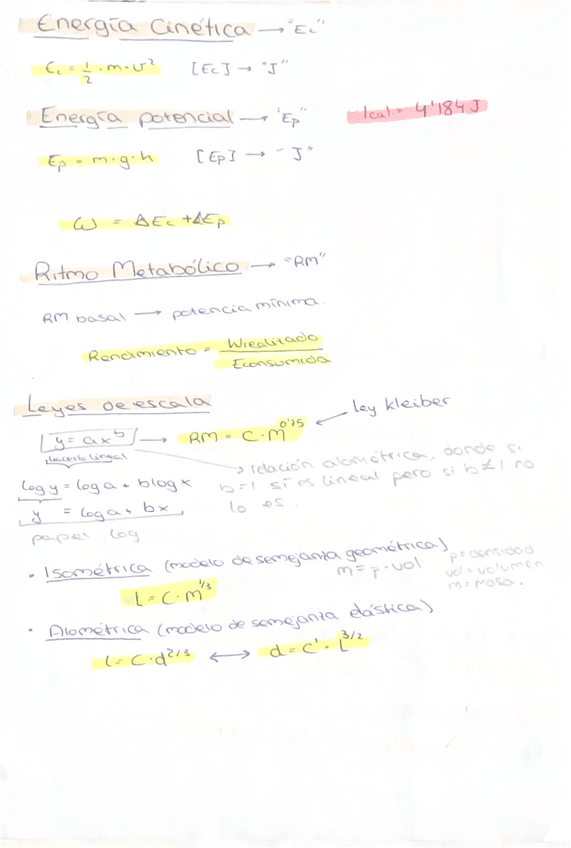 Energía Cinética → "Ec"
Ec = 1/2 · m · v² [Ec] → "J"
Energía potencial → "Ep" 1cal = 4'184 J
Ep = m·g·h [Ep] → "J"
W = ΔEc + ΔEp
Ritmo Metabólico → "RM"
RM basal → potencia mínima.
Rendimiento = Wrealizado / Econsumida
Leyes de escala
y = ax^b → RM = C·M^0'75 ← ley kleiber
hacerlo lineal
→ relación alométrica, donde si
log y = log a + b log x b=1 sí es lineal pero si b≠1 no
y = log a + bx lo es.
papel log
· Isométrica (modelo de semejanza geométrica)
m = ρ · vol
ρ = densidad
vol = volumen
m = masa.
l = C·m^1/3
· Alométrica (modelo de semejanza elástica)
l = C·d^2/3 ↔ d = C'·l^3/2